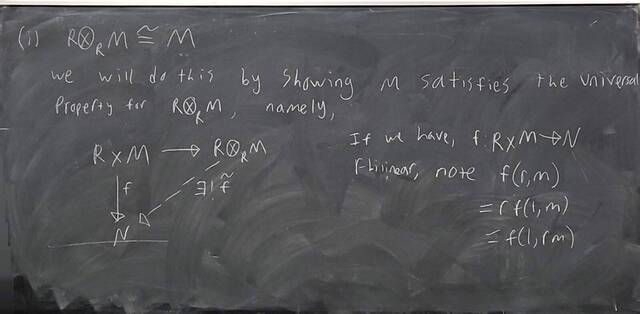 (i) R⊗_R M ≅ M
we will do this by showing M satisfies the universal
Property for R⊗_R M, namely,
R×M → R⊗_R M
f
∃! f̃
N
If we have, f: R×M → N
R-bilinear, note f(r,m)
= r f(1,m)
= f(1,rm)